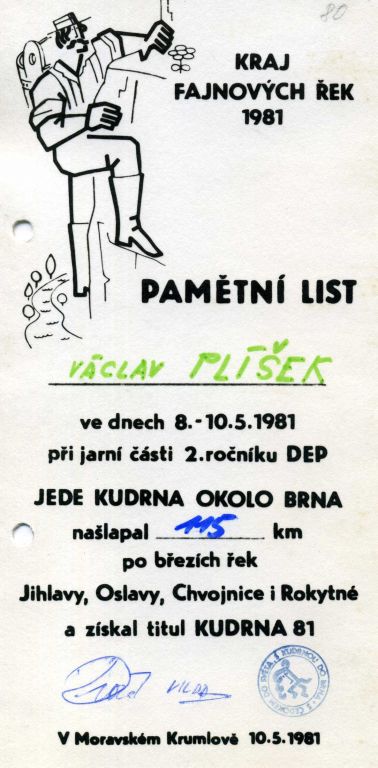 80
KRAJ
FAJNOVÝCH ŘEK
1981
PAMĚTNÍ LIST
VÁCLAV PLÍŠEK
ve dnech 8.-10.5.1981
při jarní části 2.ročníku DEP
JEDE KUDRNA OKOLO BRNA
našlapal 115 km
po březích řek
Jihlavy, Oslavy, Chvojnice i Rokytné
a získal titul KUDRNA 81
VILDA
V Moravském Krumlově 10.5.1981